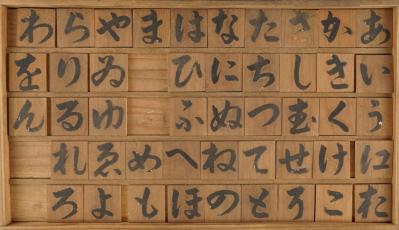 あいうえお
かきくけこ
さしすせそ
たちつてと
なにぬねの
はひふへほ
まめも
やゐゆゑよ
らりるれろ
わをん